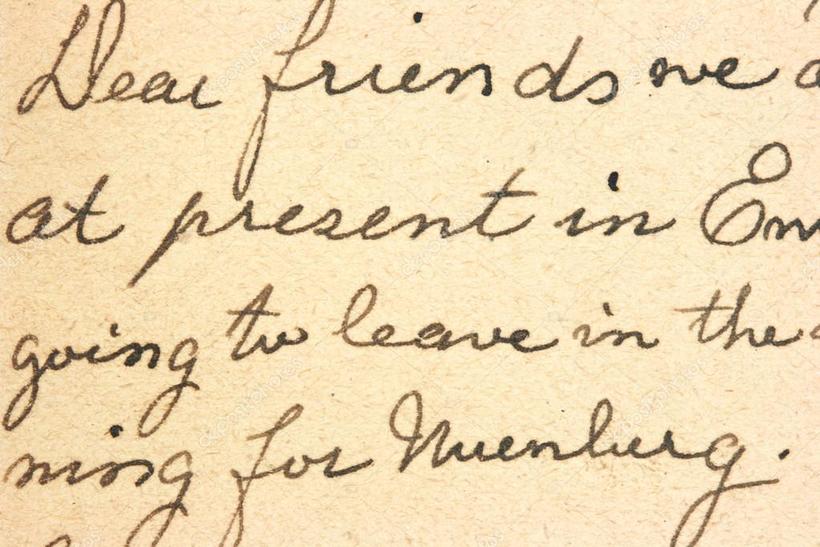 Dear friends we a
at present in Em
going to leave in the
ning for Nuenburg.